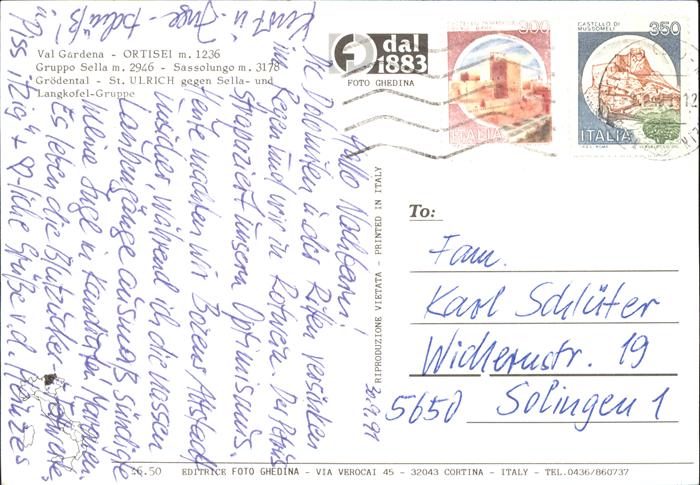 Val Gardena - ORTISEI m. 1236
Gruppo Sella m. 2946 - Sassolungo m. 3178
Grödental - St. ULRICH gegen Sella- und
Langkofel-Gruppe
dal
1883
FOTO GHEDINA
300
ITALIA
CASTELLO DI
MUSSOMELI
350
ITALIA
30.9.91
Hallo Nachbarn!
Die Dolomiten u. der Ritten versinken
im Regen und wir in Rotwein. Der
strapaziert unsern Optimismus.
Heute machten wir Bozens Altstadt
unsicher, während ich die nassen
Laubengänge ausmaß sündigte
meine Inge in
Es leben die Blutzucker-
Grüße v. d.
Inge - tschüß!
To:
Fam.
Karl Schlüter
Wichernstr. 19
5650 Solingen 1
RIPRODUZIONE VIETATA - PRINTED IN ITALY
26.50 EDITRICE FOTO GHEDINA - VIA VEROCAI 45 - 32043 CORTINA - ITALY - TEL.0436/860737